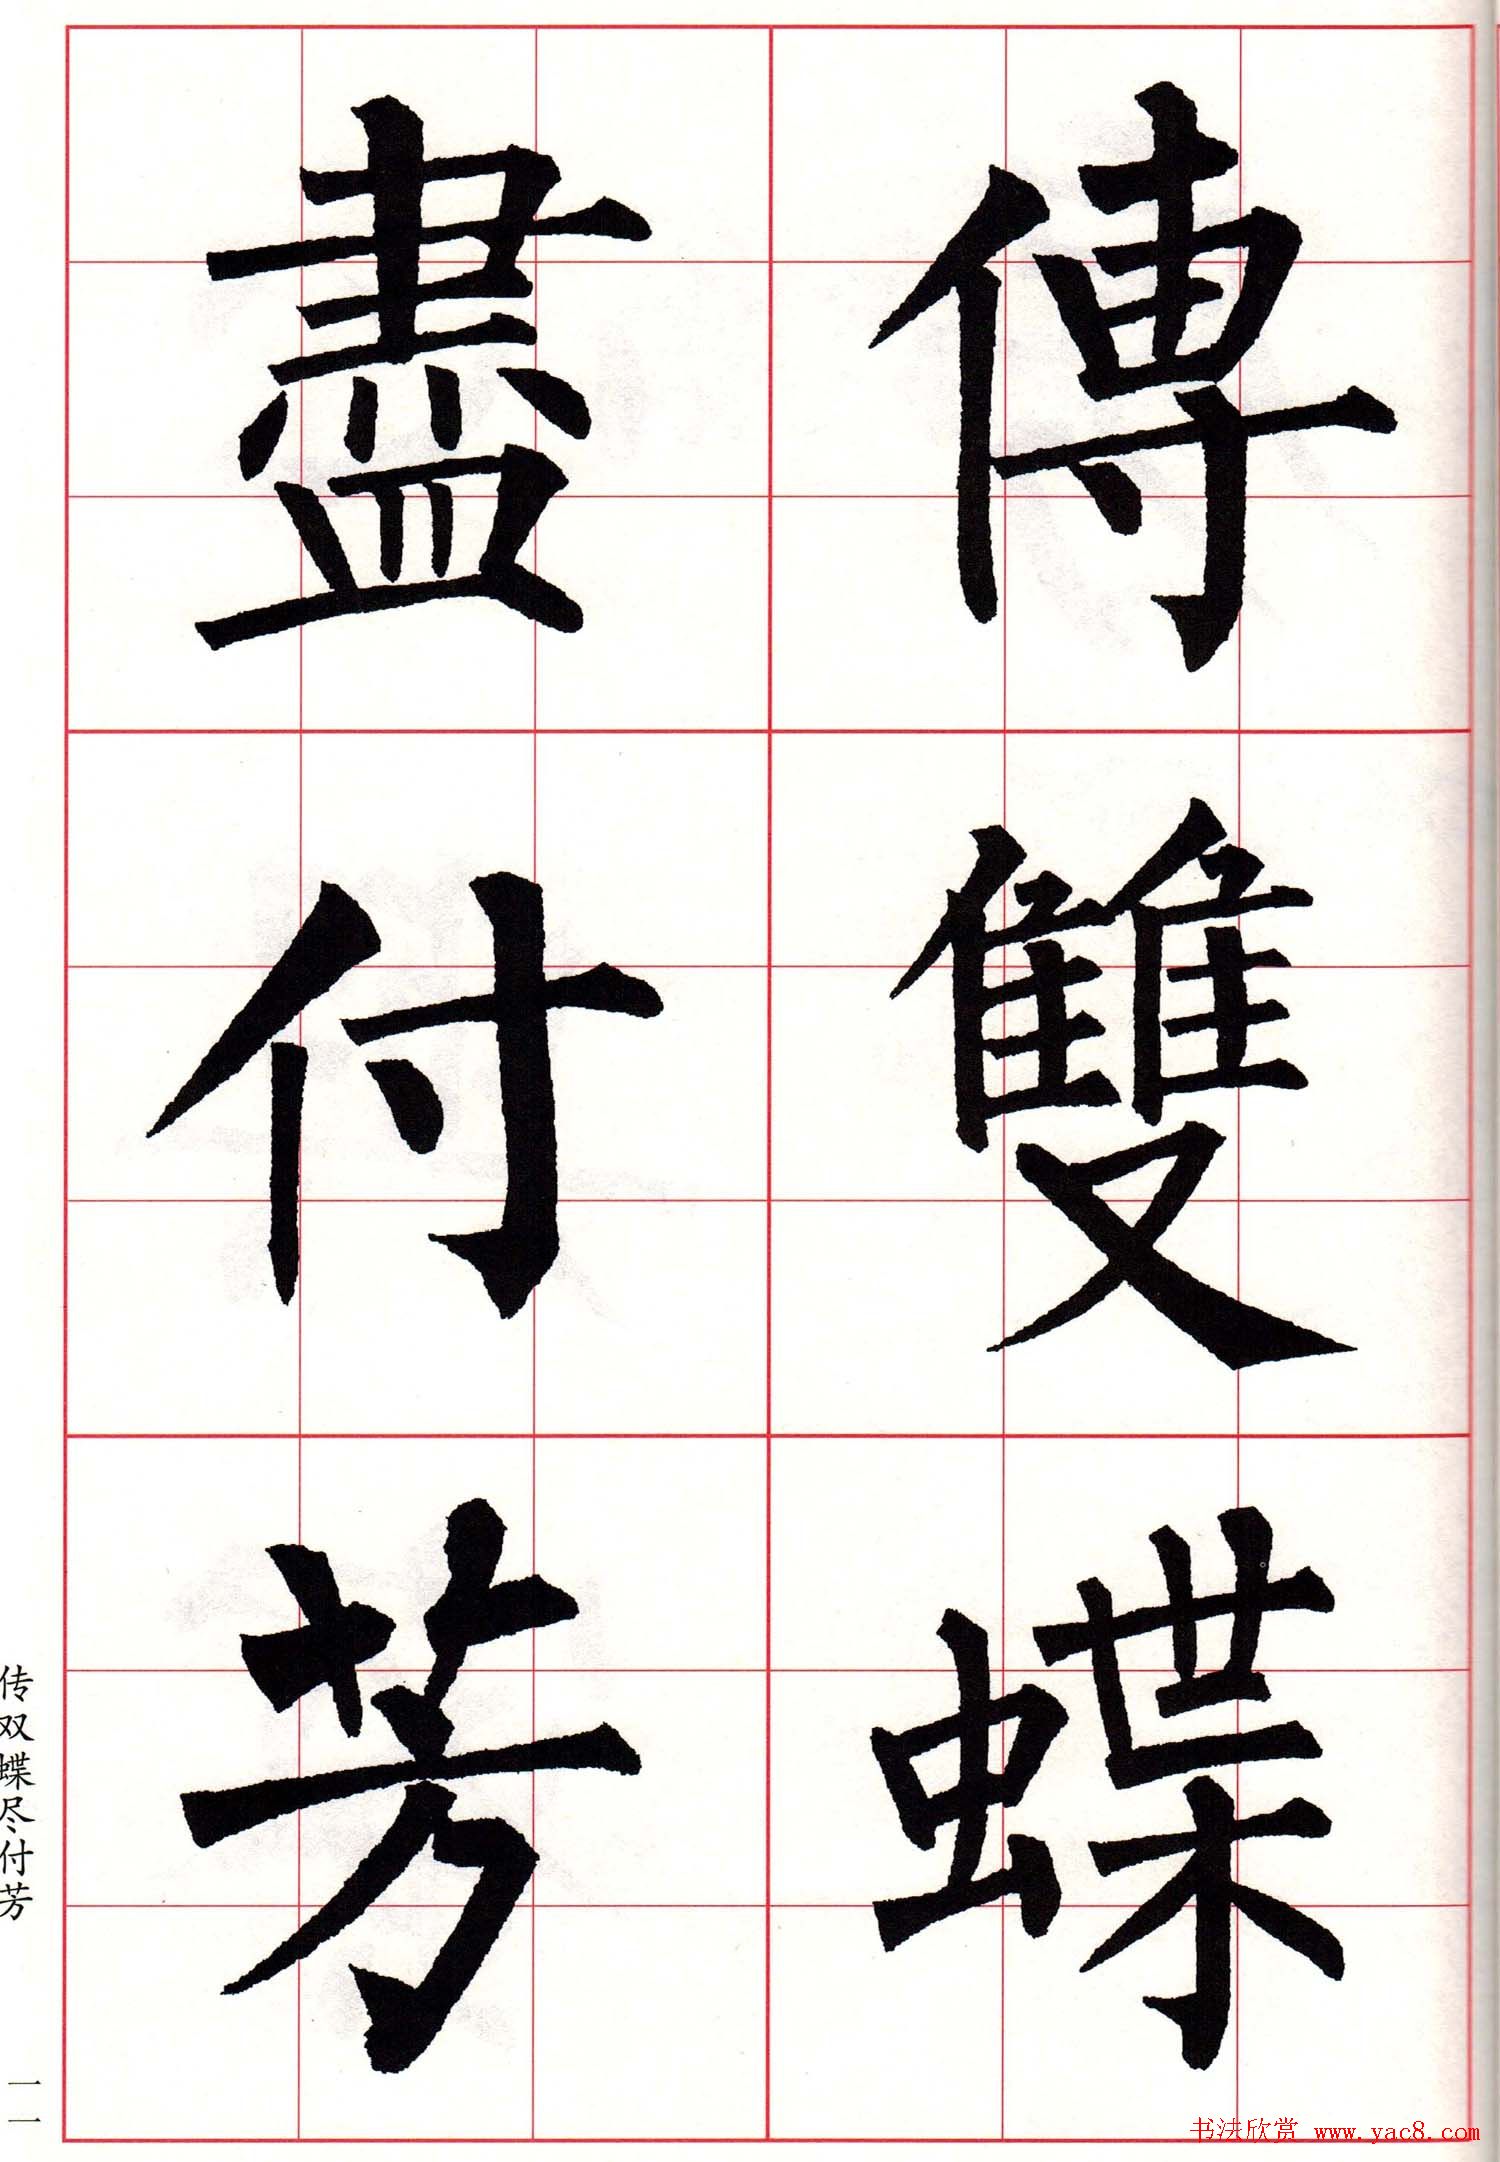 傳雙蝶
盡付芳
传双蝶尽付芳
一一
书法欣赏 www.yac8.com